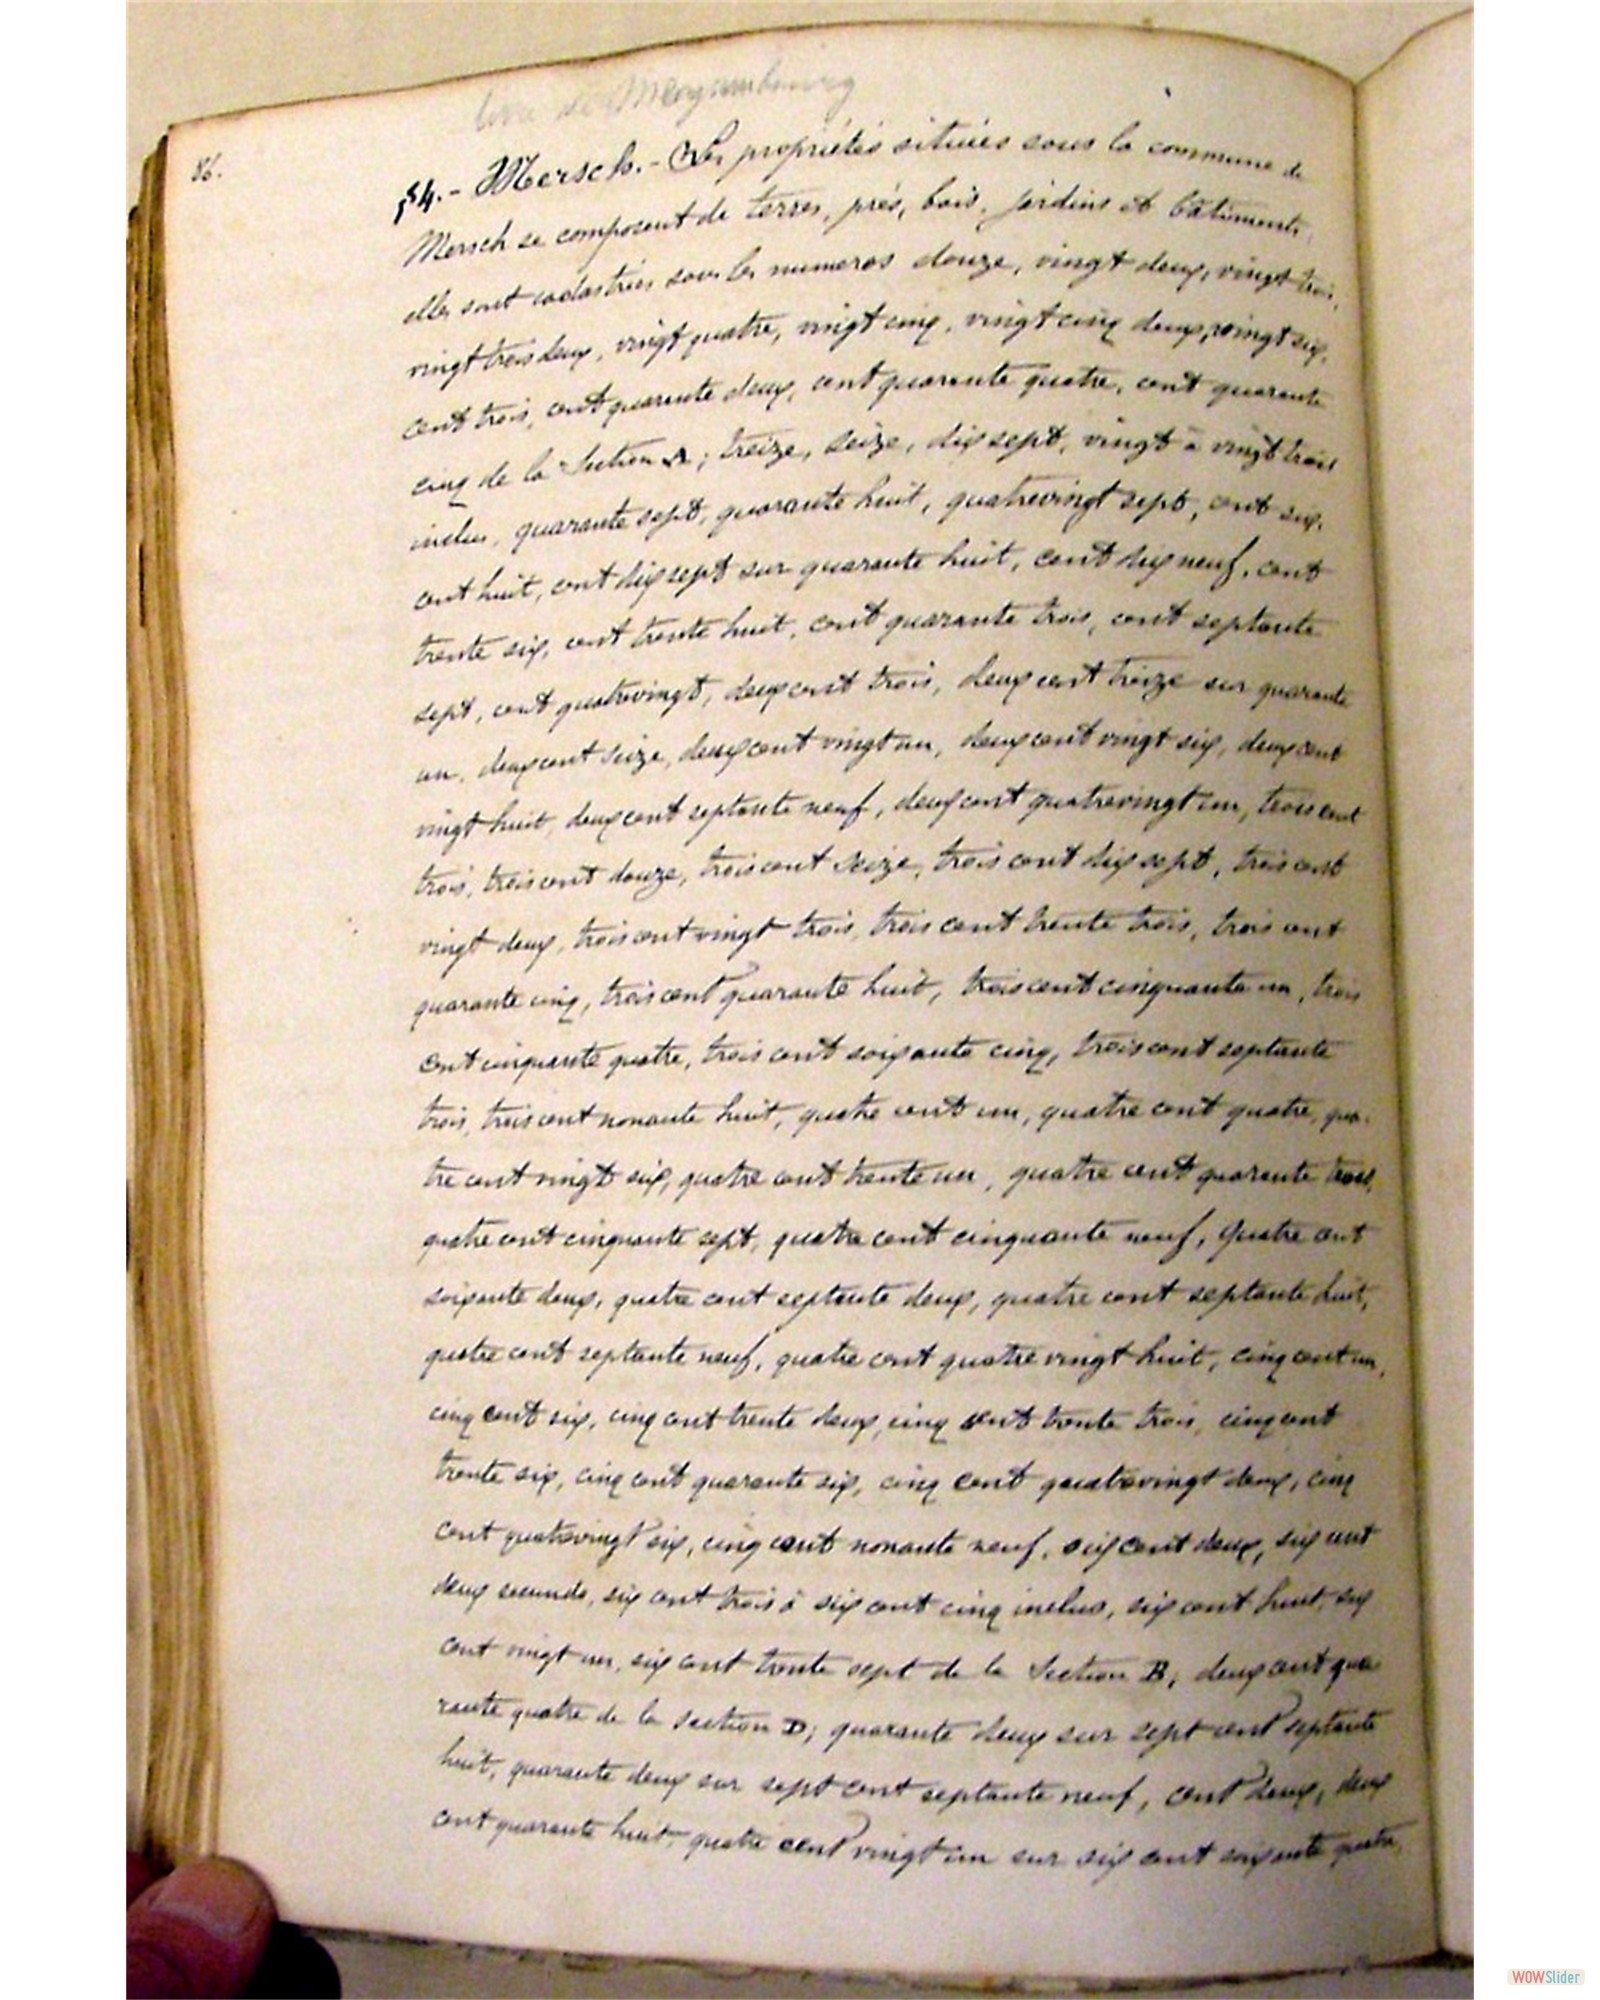 86.
§4.- Mersch.- Les propriétés situées sous la commune de
Mersch se composent de terres, prés, bois, jardins et bâtiments,
elles sont cadastrées sous les numeros douze, vingt deux, vingt trois,
vingt trois deux, vingt quatre, vingt cinq, vingt cinq deux, vingt six,
cent trois, cent quarante deux, cent quarante quatre, cent quarante
cinq de la Section A; treize, seize, dix sept, vingt à vingt trois
inclus, quarante sept, quarante huit, quatrevingt sept, cent six,
cent huit, cent dix sept sur quarante huit, cent dix neuf, cent
trente six, cent trente huit, cent quarante trois, cent septante
sept, cent quatrevingt, deux cent trois, deux cent treize sur quarante
un, deux cent seize, deux cent vingt un, deux cent vingt six, deux cent
vingt huit, deux cent septante neuf, deux cent quatrevingt un, trois cent
trois, trois cent douze, trois cent seize, trois cent dix sept, trois cent
vingt deux, trois cent vingt trois, trois cent trente trois, trois cent
quarante cinq, trois cent quarante huit, trois cent cinquante un, trois
cent cinquante quatre, trois cent soixante cinq, trois cent septante
trois, trois cent nonante huit, quatre cent un, quatre cent quatre, qua-
tre cent vingt six, quatre cent trente un, quatre cent quarante trois,
quatre cent cinquante sept, quatre cent cinquante neuf, quatre cent
soixante deux, quatre cent septante deux, quatre cent septante huit,
quatre cent septante neuf, quatre cent quatre vingt huit, cinq cent un,
cinq cent six, cinq cent trente deux, cinq cent trente trois, cinq cent
trente six, cinq cent quarante six, cinq cent quatrevingt deux, cinq
cent quatrevingt six, cinq cent nonante neuf, six cent deux, six cent
deux secundo, six cent trois à six cent cinq inclus, six cent huit, six
cent vingt un, six cent trente sept de la Section B; deux cent qua
rante quatre de la section D; quarante deux sur sept cent septante
huit, quarante deux sur sept cent septante neuf, cent deux, deux
cent quarante huit, quatre cent vingt un sur six cent soixante quatre,
WOWSlider